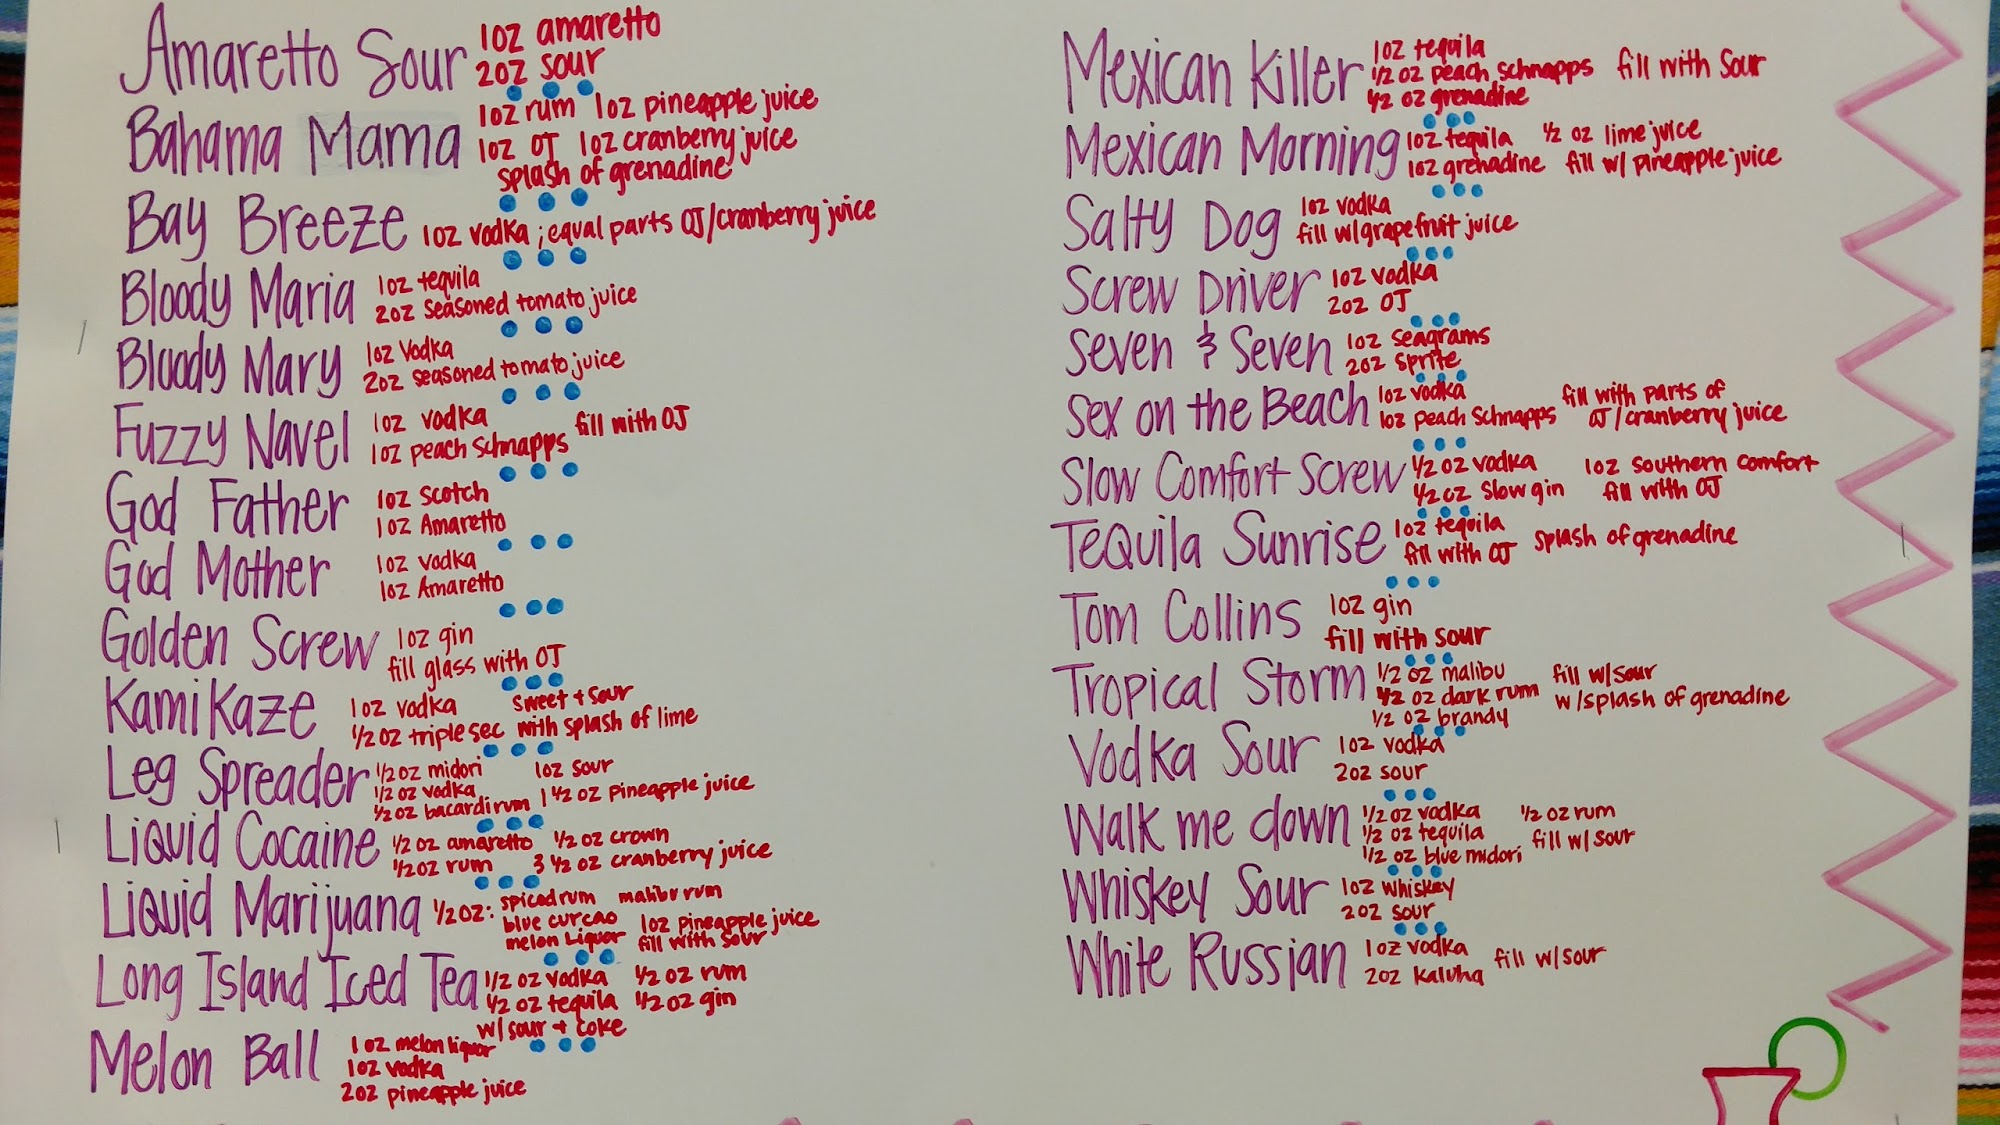 Amaretto Sour 1oz amaretto
2oz sour
Bahama Mama 1oz rum 1oz pineapple juice
1oz OJ 1oz cranberry juice
splash of grenadine
Bay Breeze 1oz vodka ; equal parts OJ/cranberry juice
Bloody Maria 1oz tequila
2oz seasoned tomato juice
Bloody Mary 1oz Vodka
2oz seasoned tomato juice
Fuzzy Navel 1oz vodka
1oz peach schnapps fill with OJ
God Father 1oz Scotch
1oz Amaretto
God Mother 1oz vodka
1oz Amaretto
Golden Screw 1oz gin
fill glass with OJ
Kamikaze 1oz vodka sweet + sour
1/2 oz triple sec with splash of lime
Leg Spreader 1/2 oz midori 1oz sour
1/2 oz vodka
1/2 oz bacardi rum 1 1/2 oz pineapple juice
Liquid Cocaine 1/2 oz amaretto 1/2 oz crown
1/2 oz rum 3 1/2 oz cranberry juice
Liquid Marijuana 1/2 oz: spiced rum malibu rum
blue curcao 1oz pineapple juice
melon Liquor fill with sour
Long Island Iced Tea 1/2 oz vodka 1/2 oz rum
1/2 oz tequila 1/2 oz gin
w/ sour + coke
Melon Ball 1oz melon liquor
1oz vodka
2oz pineapple juice
Mexican Killer 1oz tequila
1/2 oz peach schnapps fill with sour
1/2 oz grenadine
Mexican Morning 1oz tequila 1/2 oz lime juice
1oz grenadine fill w/ pineapple juice
Salty Dog 1oz vodka
fill w/grapefruit juice
Screw Driver 1oz vodka
2oz OJ
Seven & Seven 1oz seagrams
2oz sprite
Sex on the Beach 1oz vodka fill with parts of
1oz peach schnapps OJ/cranberry juice
Slow Comfort Screw 1/2 oz vodka 1oz southern comfort
1/2 oz slow gin fill with OJ
Tequila Sunrise 1oz tequila splash of grenadine
fill with OJ
Tom Collins 1oz gin
fill with sour
Tropical Storm 1/2 oz malibu fill w/sour
1/2 oz dark rum w/splash of grenadine
1/2 oz brandy
Vodka Sour 1oz vodka
2oz sour
Walk me down 1/2 oz vodka 1/2 oz rum
1/2 oz tequila fill w/ sour
1/2 oz blue midori
Whiskey Sour 1oz whiskey
2oz sour
White Russian 1oz vodka fill w/sour
2oz Kaluha